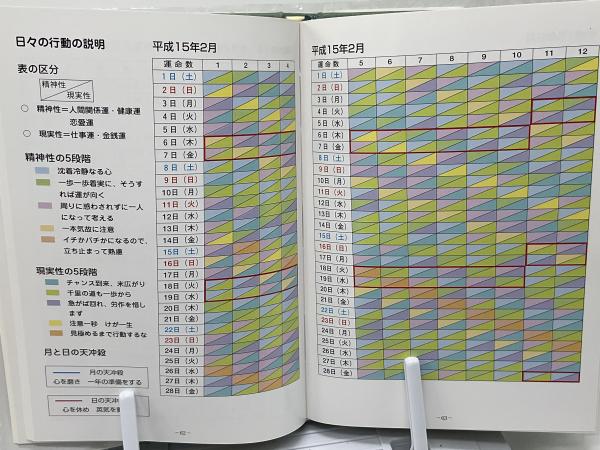 日々の行動の説明
表の区分
精神性
現実性
○ 精神性＝人間関係運・健康運
恋愛運
○ 現実性＝仕事運・金銭運
精神性の5段階
沈着冷静なる心
一歩一歩着実に、そうす
れば運が向く
周りに惑わされずに一人
になって考える
一本気故に注意
イチかバチかになるので、
立ち止まって熟慮
現実性の5段階
チャンス到来、末広がり
千里の道も一歩から
急がば回れ、労作を惜し
まず
注意一秒 けが一生
見極めるまで行動するな
月と日の天冲殺
月の天冲殺
心を磨き 一年の準備をする
日の天冲殺
心を休め 英気を
平成15年2月
運命数 1 2 3 4
1日（土）
2日（日）
3日（月）
4日（火）
5日（水）
6日（木）
7日（金）
8日（土）
9日（日）
10日（月）
11日（火）
12日（水）
13日（木）
14日（金）
15日（土）
16日（日）
17日（月）
18日（火）
19日（水）
20日（木）
21日（金）
22日（土）
23日（日）
24日（月）
25日（火）
26日（水）
27日（木）
28日（金）
－62－
平成15年2月
運命数 5 6 7 8 9 10 11 12
1日（土）
2日（日）
3日（月）
4日（火）
5日（水）
6日（木）
7日（金）
8日（土）
9日（日）
10日（月）
11日（火）
12日（水）
13日（木）
14日（金）
15日（土）
16日（日）
17日（月）
18日（火）
19日（水）
20日（木）
21日（金）
22日（土）
23日（日）
24日（月）
25日（火）
26日（水）
27日（木）
28日（金）
－63－